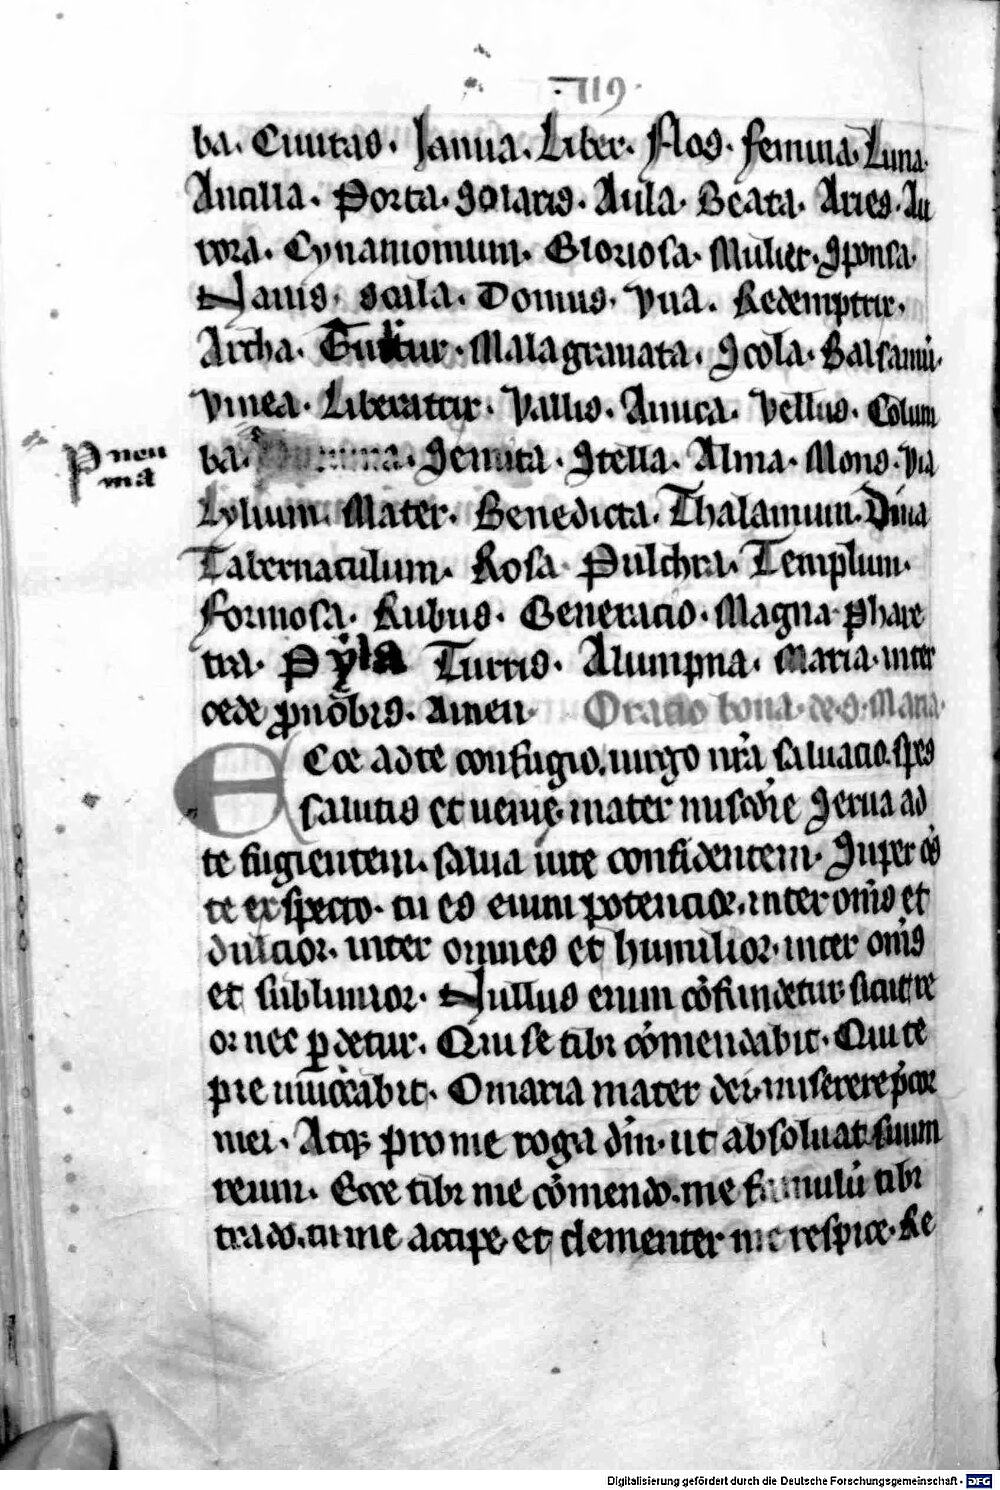 119
ba. Ciuitas. Ianua. Liber. Flos. Femina. Luna.
Ancilla. Porta. Solaris. Aula. Beata. Aries. Au
rora. Cynamomum. Gloriosa. Mulier. Sponsa.
Nauis. Scala. Domus. Vua. Redemptrix.
Archa. Turtur. Malagranata. Scola. Balsamū.
Vinea. Liberatrix. Vallis. Amica. Vellus. Colum
Pneu
ma
ba. Gemma. Semita. Stella. Alma. Mons. Via
Lylium. Mater. Benedicta. Thalamum. Diua
Tabernaculum. Rosa. Pulchra. Templum.
Formosa. Rubus. Generacio. Magna. Phare
tra. Pyla Turris. Alumpna. Maria. inter
cede p̱nobis. Amen. Oracio bona. de. s. Maria.
Ecce ad te confugio. uirgo nr̄a saluacio. spes
salutis et uenię. mater mis̄cdie Serua ad
te fugientem. salua inte confidentem. Super oēs
te exspecto. tu es enim potencior. inter om̄s et
dulcior. inter omnes et humilior. inter om̄s
et sublimior. Nullus enim cōfundetur. sicut re
or nec ꝑdetur. Qui se tibi cōmendabit. Qui te
pie inuocabit. O maria mater dei. miserere p̄cor
mei. Atqꝫ pro me roga dn̄m. ut absoluat suum
reum. Ecce tibi me cōmendo. me famulū tibi
trado. tu me accipe et clementer me respice. Re
Digitalisierung gefördert durch die Deutsche Forschungsgemeinschaft - DFG